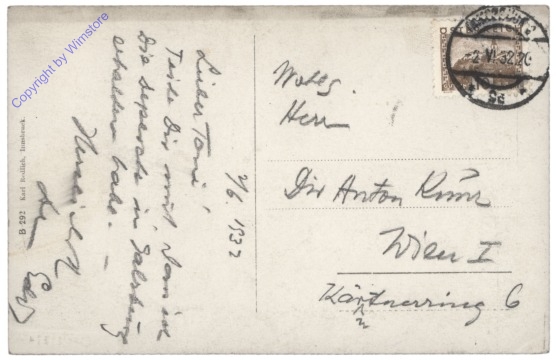 2/6. 1932
Lieber Toni!
Teile Dir mit, dass ich
die Depesche in Salzburg
erhalten habe. –
Herzlichst
Wohlg.
Herrn
Dir Anton
Wien I
Kärntnerring 6
-2. VI. 32. 20
B 292 Karl Redlich, Innsbruck.
Copyright by Wimstore